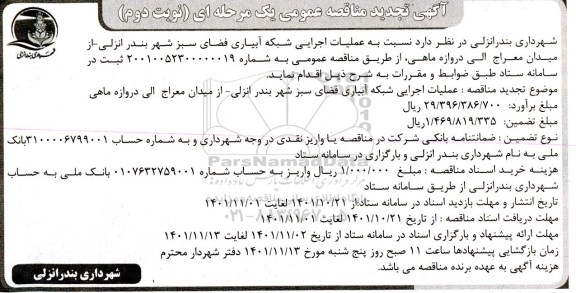 آگهی تجدید مناقصه عمومی یک مرحله ای (نوبت دوم)
شهرداری بندرانزلی در نظر دارد نسبت به عملیات اجرایی شبکه آبیاری فضای سبز شهر بندر انزلی-از
میدان معراج الی دروازه ماهی، از طریق مناقصه عمومی به شماره ۲۰۰۱۰۰۵۲۳۰۰۰۰۰۰۱۹ ثبت در
سامانه ستاد طبق ضوابط و مقررات به شرح ذیل اقدام نماید.
موضوع تجدید مناقصه : عملیات اجرایی شبکه آبیاری فضای سبز شهر بندر انزلی- از میدان معراج الی دروازه ماهی
مبلغ برآورد: ۲۹/۳۹۶/۳۸۶/۷۰۰ ریال
مبلغ تضمین: ۱/۴۶۹/۸۱۹/۳۳۵ریال
نوع تضمین : ضمانتنامه بانکی شرکت در مناقصه یا واریز نقدی در وجه شهرداری و به شماره حساب ۳۱۰۰۰۰۶۷۹۹۰۰۱بانک
ملی به نام شهرداری بندر انزلی و بارگزاری در سامانه ستاد
هزینه خرید اسناد مناقصه : مبلغ ۱/۰۰۰/۰۰۰ ریال واریز به حساب شماره ۰۱۰۷۶۳۲۷۵۹۰۰۱ بانک ملی به حساب
شهرداری بندرانزلی از طریق سامانه ستاد
تاریخ انتشار و مهلت بازدید اسناد در سامانه ستاد:از ۱۴۰۱/۱۰/۲۱ لغایت ۱۴۰۱/۱۱/۰۱
مهلت دریافت اسناد مناقصه : از تاریخ ۱۴۰۱/۱۰/۲۱ لغایت ۱۴۰۱/۱۱/۰۱
مهلت ارائه پیشنهاد و بارگزاری اسناد در سامانه ستاد از تاریخ ۱۴۰۱/۱۱/۰۲ لغایت ۱۴۰۱/۱۱/۱۳
زمان بازگشایی پیشنهادها ساعت ۱۱ صبح روز پنج شنبه مورخ ۱۴۰۱/۱۱/۱۳ دفتر شهردار محترم
هزینه آگهی به عهده برنده مناقصه می باشد.
شهرداری بندرانزلی
شهرداری بندرانزلی
ParsNamadData